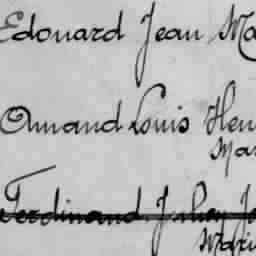 Edouard Jean Ma
Amand Louis Hen
Mar
Ferdinand Julien Je
Marie